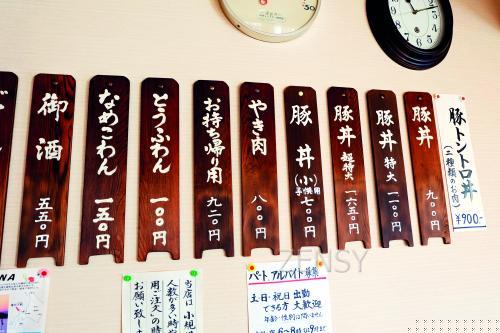 豚トントロ丼
(二種類のお肉)
¥900-
豚丼
九〇〇円
豚丼 特大
一一〇〇円
豚丼 超特大
一六五〇円
豚丼(小)
子供用
七〇〇円
やき肉
八〇〇円
お持ち帰り用
九二〇円
とうふわん
一〇〇円
なめこわん
一五〇円
御酒
五五〇円
パート アルバイト 募集
土日・祝日 出勤
できる方 大歓迎
年齢・性別は問いません
6〜8時
当店は小規
人数が多い時や
用ご注文」の時
お願い致し
ZENSY
NA